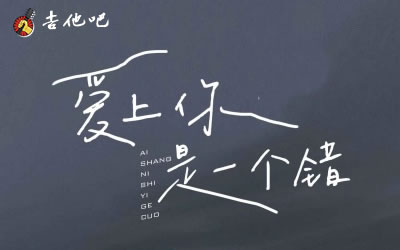 吉他吧
爱上你
是一个错
AI
SHANG
NI
SHI
YI
GE
CUO